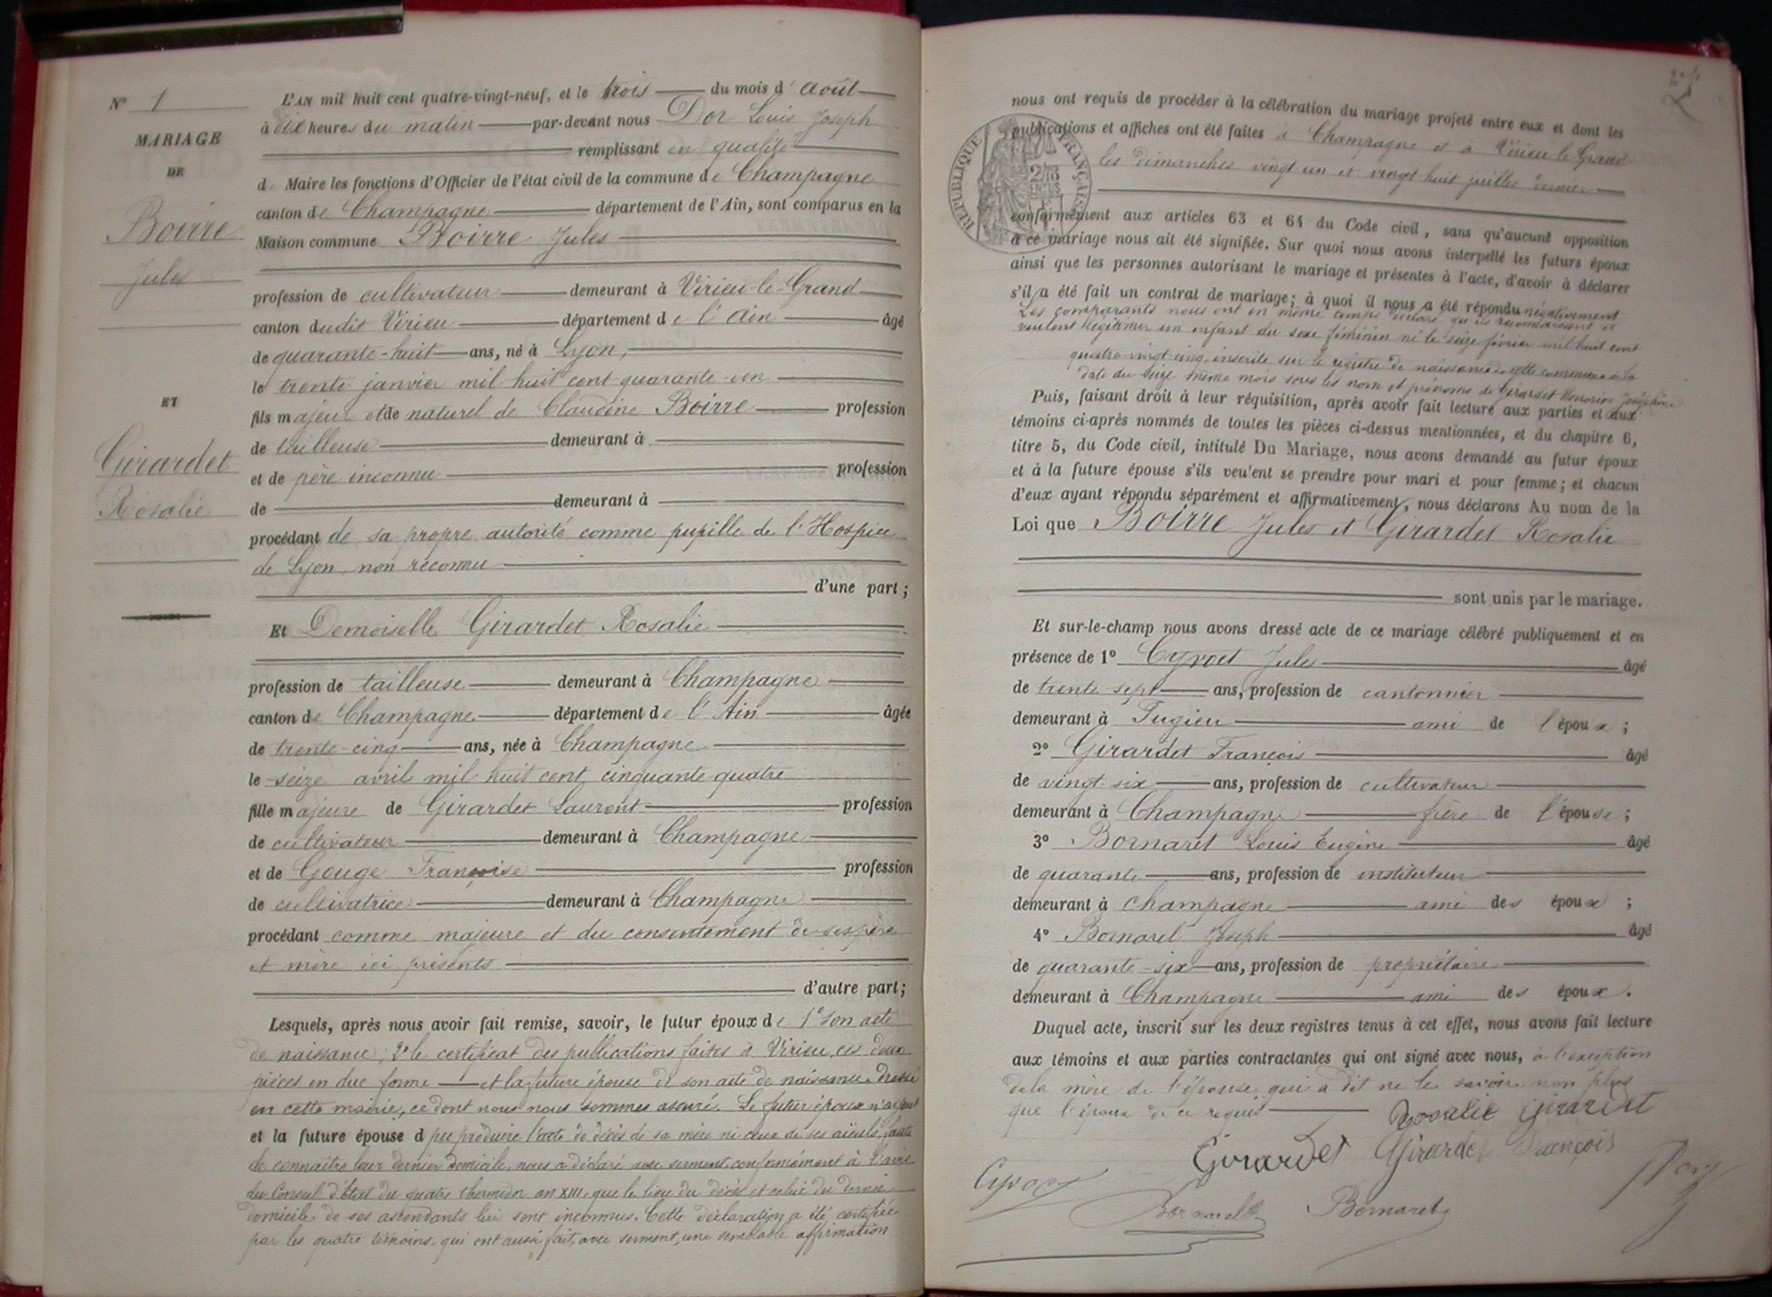 N° 1
MARIAGE
DE
Boirre
Jules
ET
Girardet
Rosalie
L'AN mil huit cent quatre-vingt-neuf, et le trois du mois d'août
à dix heures du matin par-devant nous Dor Louis Joseph
remplissant en qualité
de Maire les fonctions d'Officier de l'état civil de la commune de Champagne
canton de Champagne département de l'Ain, sont comparus en la
Maison commune Boirre Jules
profession de cultivateur demeurant à Virieu-le-Grand
canton dudit Virieu département de l'Ain âgé
de quarante-huit ans, né à Lyon,
le trente janvier mil huit cent quarante-un
fils majeur et de naturel de Claudine Boirre profession
de tailleuse demeurant à
et de père inconnu profession
de demeurant à
procédant de sa propre autorité comme pupille de l'Hospice
de Lyon, non reconnu
d'une part;
Et Demoiselle Girardet Rosalie
profession de tailleuse demeurant à Champagne
canton de Champagne département de l'Ain âgée
de trente-cinq ans, née à Champagne
le seize avril mil huit cent cinquante quatre
fille majeure de Girardet Laurent profession
de cultivateur demeurant à Champagne
et de Gouge Françoise profession
de cultivatrice demeurant à Champagne
procédant comme majeure et du consentement de ses père
et mère ici présents
d'autre part;
Lesquels, après nous avoir fait remise, savoir, le futur époux de 1° son acte
de naissance; 2° le certificat des publications faites à Virieu, ces deux
pièces en due forme et la future épouse de son acte de naissance dressé
en cette mairie, ce dont nous nous sommes assuré. Le futur époux n'ayant
et la future épouse d pu produire l'acte de décès de sa mère ni ceux de ses aïeuls, faute
de connaître leur dernier domicile, nous a déclaré avec serment, conformément à l'avis
du Conseil d'État du quatre thermidor an XIII, que le lieu du décès et celui du dernier
domicile de ses ascendants lui sont inconnus. Cette déclaration a été certifiée
par les quatre témoins, qui ont aussi fait, avec serment, une semblable affirmation
2
nous ont requis de procéder à la célébration du mariage projeté entre eux et dont les
publications et affiches ont été faites à Champagne et à Virieu le Grand
les dimanches vingt un et vingt huit juillet dernier
RÉPUBLIQUE FRANÇAISE
conformément aux articles 63 et 64 du Code civil, sans qu'aucune opposition
à ce mariage nous ait été signifiée. Sur quoi nous avons interpellé les futurs époux
ainsi que les personnes autorisant le mariage et présentes à l'acte, d'avoir à déclarer
s'il a été fait un contrat de mariage; à quoi il nous a été répondu négativement
Les comparants nous ont en même temps déclaré qu'ils reconnaissent et
veulent légitimer un enfant du sexe féminin né le seize février mil huit cent
quatre-vingt-cinq, inscrite sur le registre de naissance de cette commune à la
date du seize même mois sous les nom et prénoms de Girardet Honorine Joséphine
Puis, faisant droit à leur réquisition, après avoir fait lecture aux parties et aux
témoins ci-après nommés de toutes les pièces ci-dessus mentionnées, et du chapitre 6,
titre 5, du Code civil, intitulé Du Mariage, nous avons demandé au futur époux
et à la future épouse s'ils veulent se prendre pour mari et pour femme; et chacun
d'eux ayant répondu séparément et affirmativement, nous déclarons Au nom de la
Loi que Boirre Jules et Girardet Rosalie
sont unis par le mariage.
Et sur-le-champ nous avons dressé acte de ce mariage célébré publiquement et en
présence de 1° Cyvoct Jules âgé
de trente-sept ans, profession de cantonnier
demeurant à Fugieu ami de l'époux;
2° Girardet François âgé
de vingt-six ans, profession de cultivateur
demeurant à Champagne frère de l'épouse;
3° Bornaret Louis Eugène âgé
de quarante ans, profession de instituteur
demeurant à Champagne ami des époux;
4° Bornarel Joseph âgé
de quarante-six ans, profession de propriétaire
demeurant à Champagne ami des époux.
Duquel acte, inscrit sur les deux registres tenus à cet effet, nous avons fait lecture
aux témoins et aux parties contractantes qui ont signé avec nous, à l'exception
de la mère de l'épouse qui a dit ne le savoir non plus
que l'époux de ce requis
Rosalie Girardet
Girardet Girardet François
Cyvoct Dor
Bornarel Bornaret